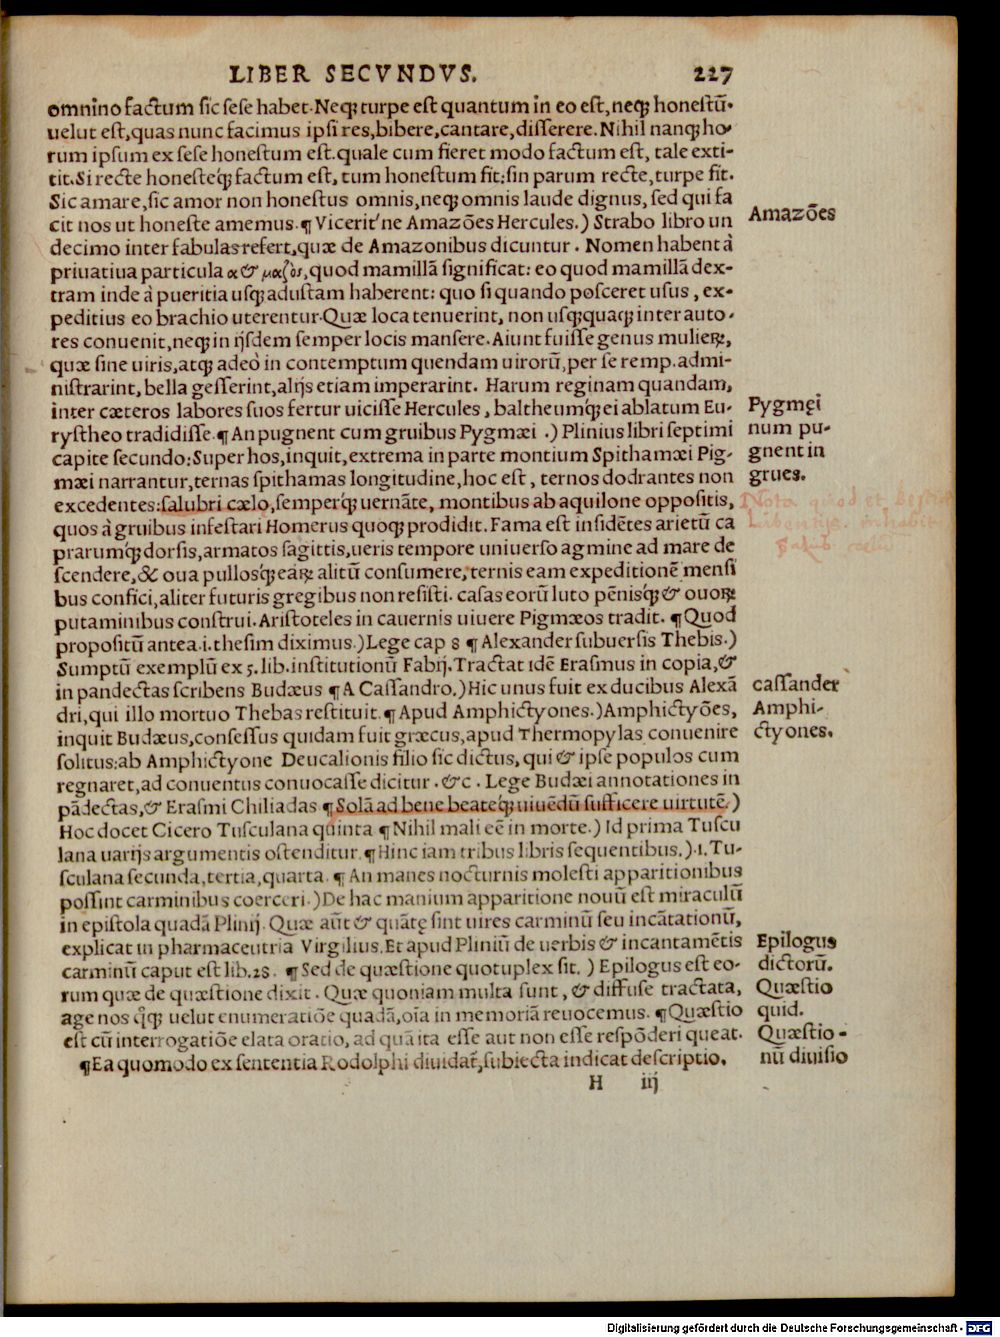 LIBER SECVNDVS. 227
omnino factum sic sese habet. Neqꝫ turpe est quantum in eo est, neqꝫ honestū.
uelut est, quas nunc facimus ipsi res, bibere, cantare, disserere. Nihil nanqꝫ ho-
rum ipsum ex sese honestum est. quale cum fieret modo factum est, tale exti-
tit. Si recte honesteqꝫ factum est, tum honestum fit: sin parum recte, turpe fit.
Sic amare, sic amor non honestus omnis, neqꝫ omnis laude dignus, sed qui fa
cit nos ut honeste amemus. ¶ Vicerit'ne Amazões Hercules.) Strabo libro un
decimo inter fabulas refert, quæ de Amazonibus dicuntur. Nomen habent à
priuatiua particula α & μαζὸς, quod mamillā significat: eo quod mamillā dex-
tram inde à pueritia usqꝫ adustam haberent: quo si quando posceret usus, ex-
peditius eo brachio uterentur. Quæ loca tenuerint, non usqꝫquaqꝫ inter auto-
res conuenit, neqꝫ in ijsdem semper locis mansere. Aiunt fuisse genus mulieꝝ,
quæ sine uiris, atqꝫ adeò in contemptum quendam uirorū, per se remp. admi-
nistrarint, bella gesserint, alijs etiam imperarint. Harum reginam quandam,
inter cæteros labores suos fertur uicisse Hercules, baltheumqꝫ ei ablatum Eu-
rystheo tradidisse. ¶ An pugnent cum gruibus Pygmæi.) Plinius libri septimi
capite secundo: Super hos, inquit, extrema in parte montium Spithamæi Pig-
mæi narrantur, ternas spithamas longitudine, hoc est, ternos dodrantes non
excedentes: salubri cælo, semperqꝫ uernāte, montibus ab aquilone oppositis,
quos à gruibus infestari Homerus quoqꝫ prodidit. Fama est insidētes arietū ca
prarumqꝫ dorsis, armatos sagittis, ueris tempore uniuerso agmine ad mare de
scendere, & oua pullosqꝫ eaꝝ alitū consumere, ternis eam expeditionē mensi
bus confici, aliter futuris gregibus non resisti. casas eorū luto pēnisqꝫ & ouoꝝ
putaminibus construi. Aristoteles in cauernis uiuere Pigmæos tradit. ¶ Quod
propositū antea .i. thesim diximus.) Lege cap 8 ¶ Alexander subuersis Thebis.)
Sumptū exemplū ex 5. lib. institutionū Fabij. Tractat idē Erasmus in copia, &
in pandectas scribens Budæus ¶ A Cassandro.) Hic unus fuit ex ducibus Alexā
dri, qui illo mortuo Thebas restituit. ¶ Apud Amphictyones.) Amphictyões,
inquit Budæus, consessus quidam fuit græcus, apud Thermopylas conuenire
solitus: ab Amphictyone Deucalionis filio sic dictus, qui & ipse populos cum
regnaret, ad conuentus conuocasse dicitur. &c. Lege Budæi annotationes in
pādectas, & Erasmi Chiliadas ¶ Solā ad bene beateqꝫ uiuēdū sufficere uirtutē.)
Hoc docet Cicero Tusculana quinta ¶ Nihil mali eē in morte.) Id prima Tuscu
lana uarijs argumentis ostenditur. ¶ Hinc iam tribus libris sequentibus.) .i. Tu-
sculana secunda, tertia, quarta. ¶ An manes nocturnis molesti apparitionibus
possint carminibus coerceri.) De hac manium apparitione nouū est miraculū
in epistola quadā Plinij. Quæ aūt & quātę sint uires carminū seu incātationū,
explicat in pharmaceutria Virgilius. Et apud Pliniū de uerbis & incantamētis
carminū caput est lib. 28. ¶ Sed de quæstione quotuplex sit.) Epilogus est eo-
rum quæ de quæstione dixit. Quæ quoniam multa sunt, & diffuse tractata,
age nos q̊qꝫ uelut enumeratiōe quadā, oīa in memoriā reuocemus. ¶ Quæstio
est cū interrogatiōe elata oratio, ad quā ita esse aut non esse respōderi queat.
¶ Ea quomodo ex sententia Rodolphi diuidat̄, subiecta indicat descriptio.
H iij
Amazões
Pygmęi
num pu-
gnent in
grues.
Nota quod et
salub. cælū
cassander
Amphi-
ctyones.
Epilogus
dictorū.
Quæstio
quid.
Quæstio-
nū diuisio
Digitalisierung gefördert durch die Deutsche Forschungsgemeinschaft - DFG